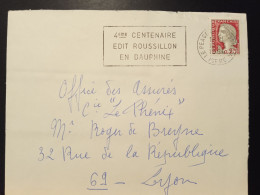 4ème CENTENAIRE
EDIT ROUSSILLON
EN DAUPHINE
Office des Assurés
Cie "Le Phénix"
Mr Roger de Breyne
32 Rue de la République
69 - Lyon